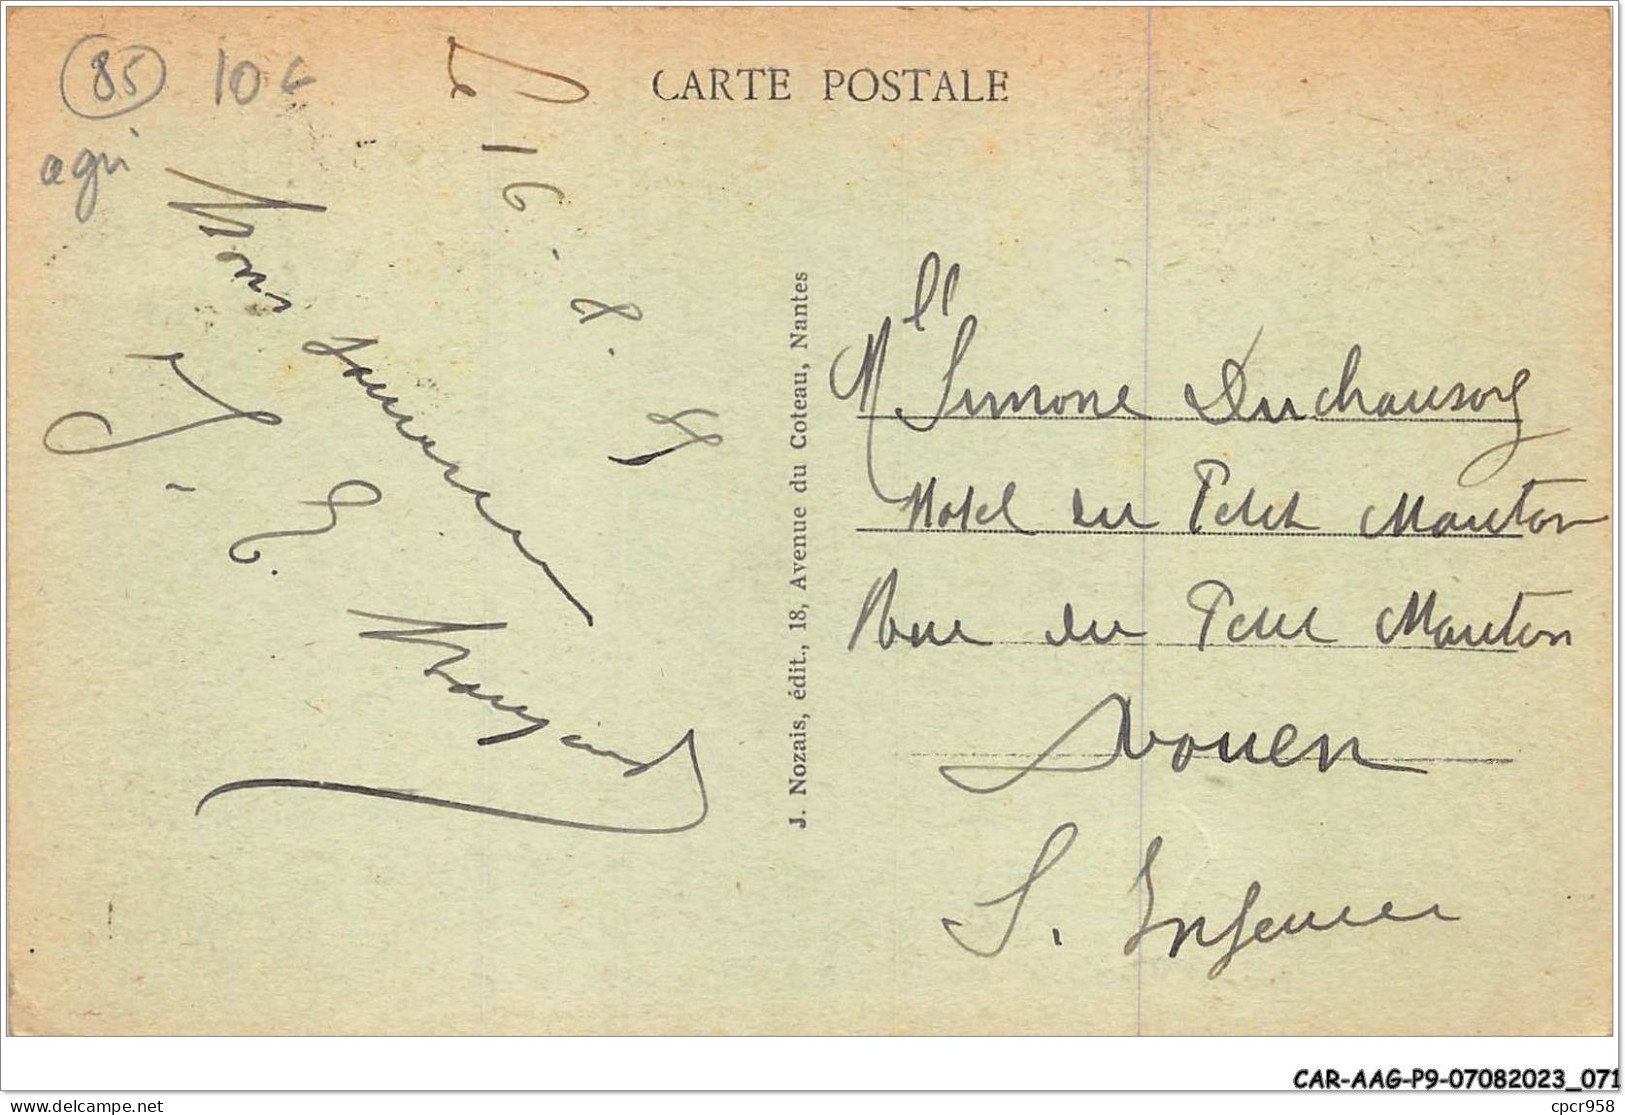 85
10 c
agri
CARTE POSTALE
Le 16. 8.
Mon souvenir
J. Nozais, édit., 18, Avenue du Coteau, Nantes
Mlle Simone
Hotel du Petit Mouton
Rue du Petit Mouton
Rouen
S. Inferieure
CAR-AAG-P9-07082023_071
delcampe.net
cpcr958